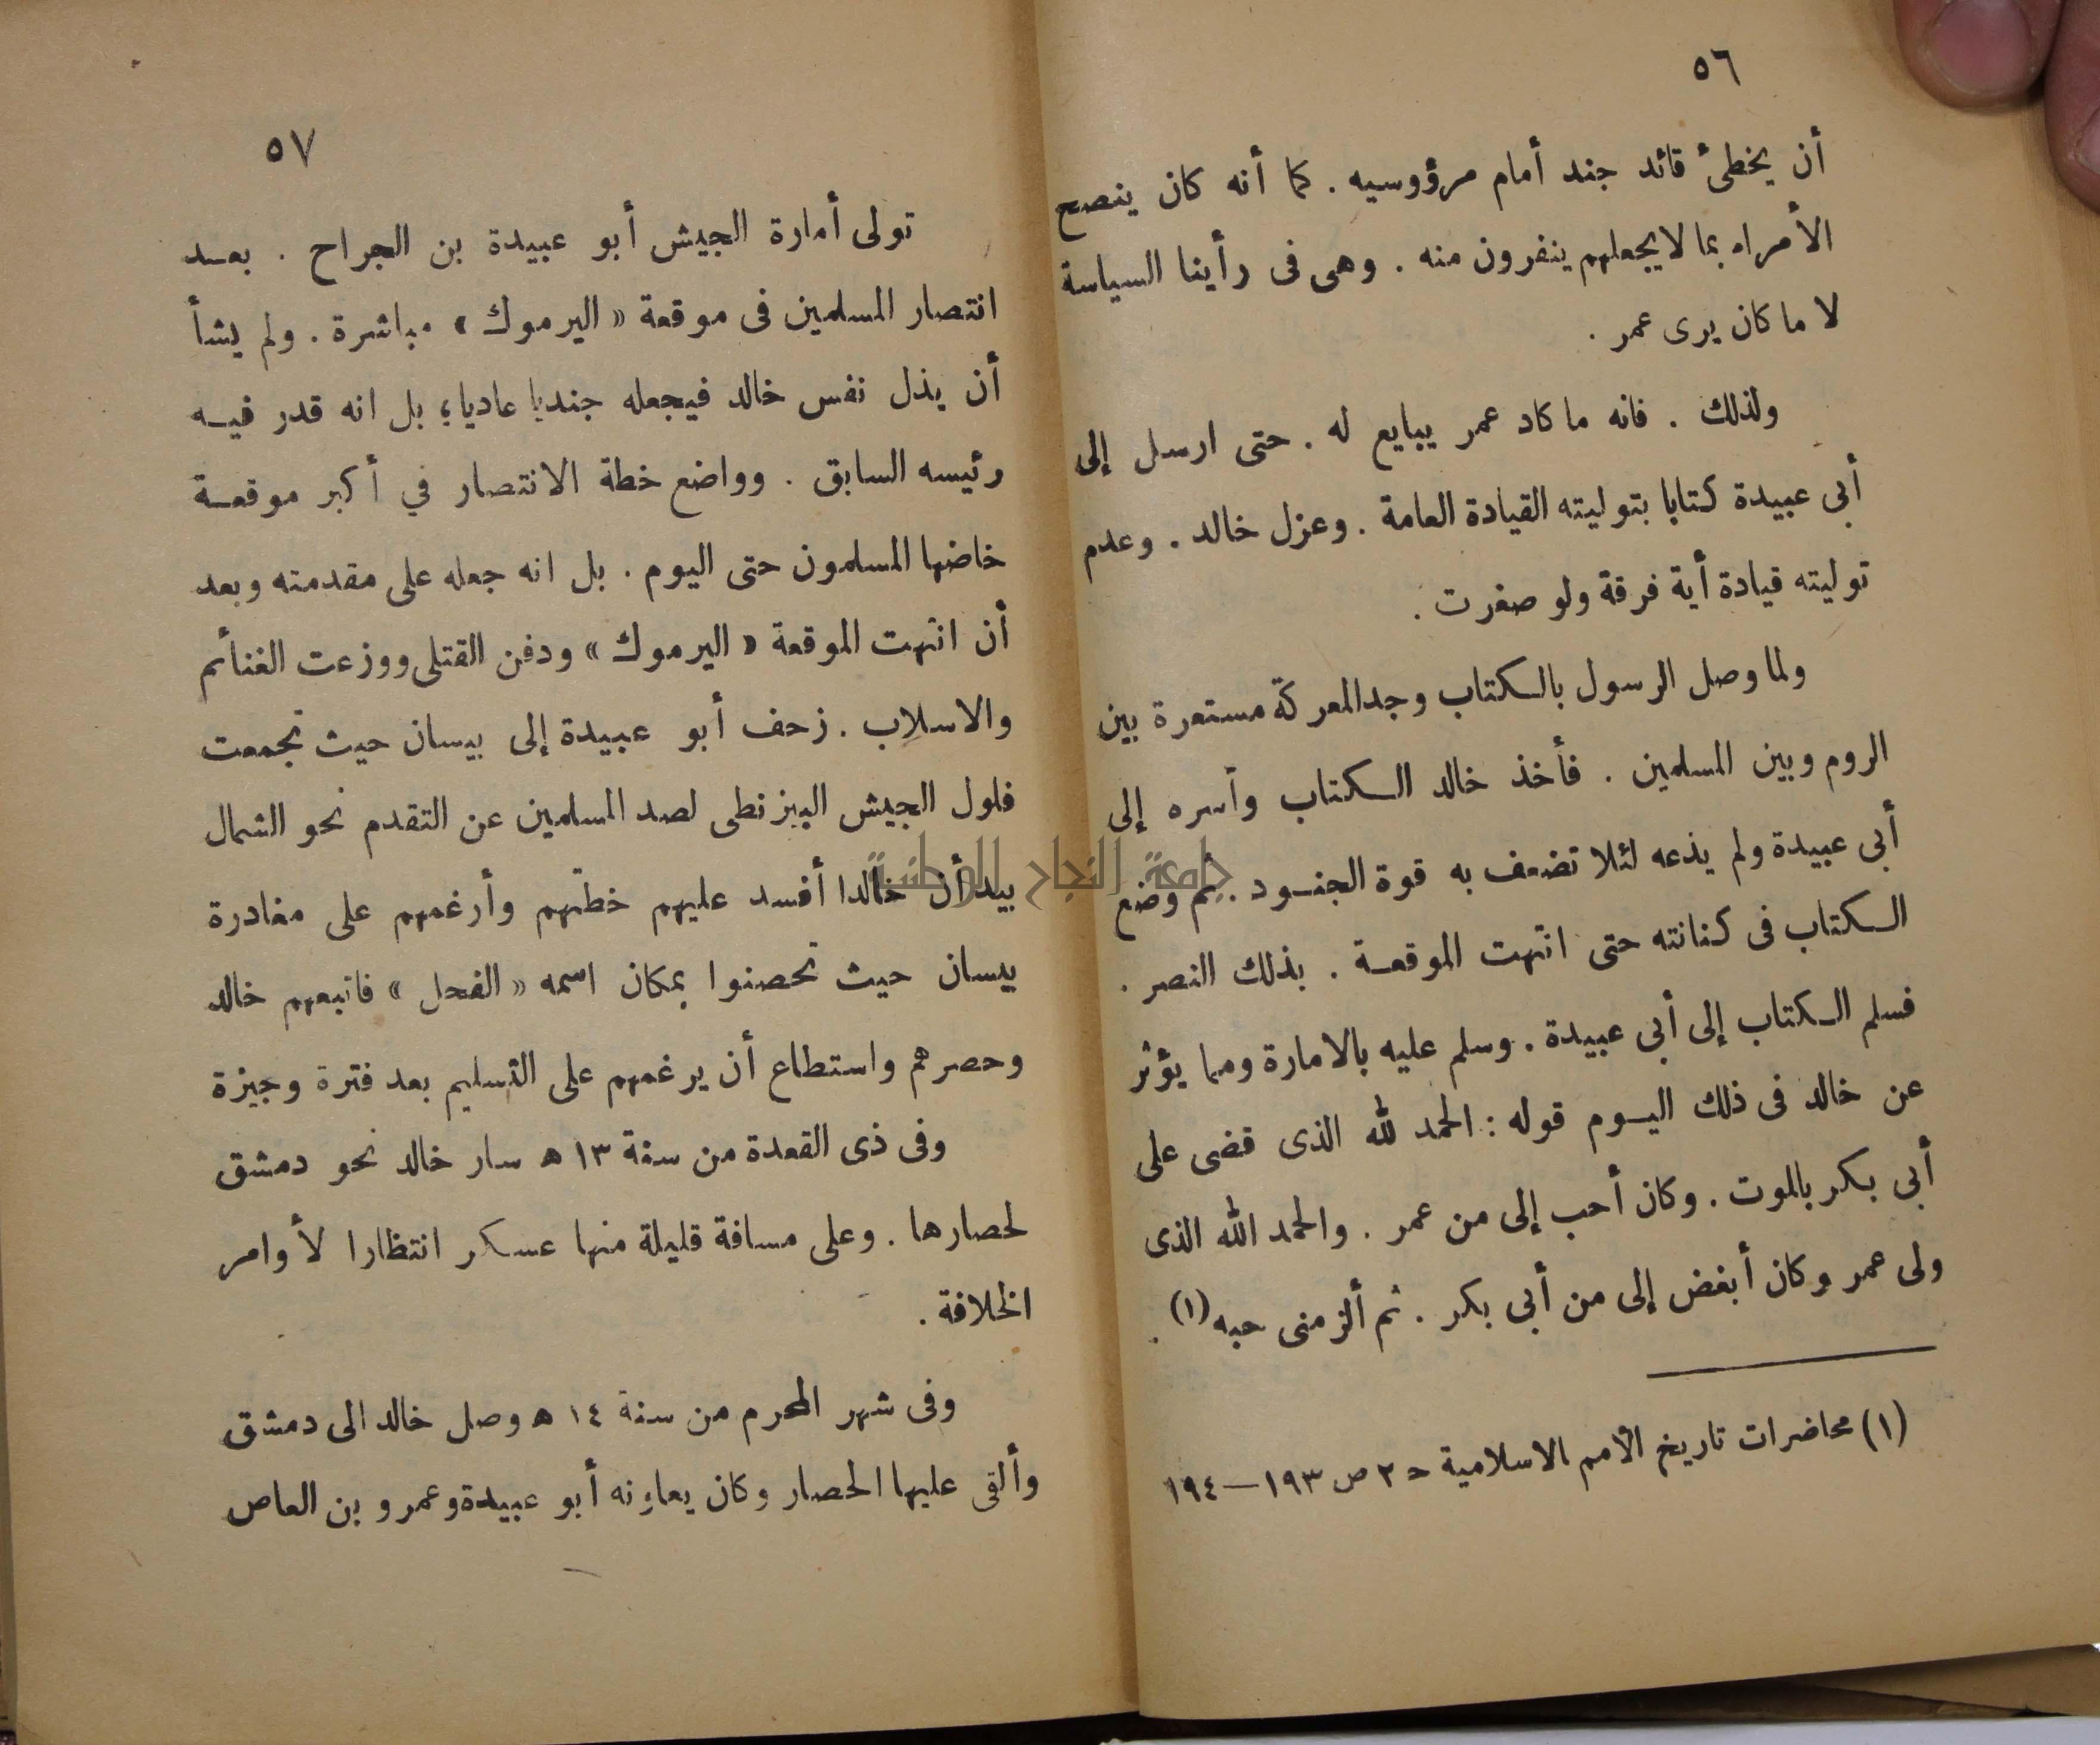 ٥٦
أن يخطئ قائد جند أمام مرؤوسيه . كما أنه كان ينصح
الأمراء بما لا يجعلهم ينفرون منه . وهى فى رأينا السياسة
لا ما كان يرى عمر .
ولذلك . فانه ما كاد عمر يبايع له . حتى ارسل إلى
أبى عبيدة كتابا بتوليته القيادة العامة . وعزل خالد . وعدم
توليته قيادة أية فرقة ولو صغرت .
ولما وصل الرسول بالكتاب وجد المعركة مستعرة بين
الروم وبين المسلمين . فأخذ خالد الكتاب وأسره إلى
أبى عبيدة ولم يذعه لئلا تضعف به قوة الجنود . ثم وضع
الكتاب فى كنانته حتى انتهت الموقعة . بذلك النصر .
فسلم الكتاب إلى أبى عبيدة . وسلم عليه بالامارة ومما يؤثر
عن خالد فى ذلك اليوم قوله : الحمد لله الذى قضى على
أبى بكر بالموت . وكان أحب إلى من عمر . والحمد الله الذى
ولى عمر وكان أبغض إلى من أبى بكر . ثم ألزمنى حبه (١) .
(١) محاضرات تاريخ الأمم الاسلامية ح ٢ ص ١٩٣ — ١٩٤
٥٧
تولى أمارة الجيش أبو عبيدة بن الجراح . بعد
انتصار المسلمين فى موقعة « اليرموك » مباشرة . ولم يشأ
أن يذل نفس خالد فيجعله جنديا عاديا؛ بل انه قدر فيه
رئيسه السابق . وواضع خطة الانتصار في أكبر موقعة
خاضها المسلمون حتى اليوم . بل انه جعله على مقدمته وبعد
أن انتهت الموقعة « اليرموك » ودفن القتلى ووزعت الغنائم
والاسلاب . زحف أبو عبيدة إلى بيسان حيث تجمعت
فلول الجيش البيزنطى لصد المسلمين عن التقدم نحو الشمال
بيد أن خالدا أفسد عليهم خطتهم وأرغمهم على مغادرة
بيسان حيث تحصنوا بمكان اسمه « الفحل » فاتبعهم خالد
وحصرهم واستطاع أن يرغمهم على التسليم بعد فترة وجيزة
وفى ذى القعدة من سنة ١٣ ه سار خالد نحو دمشق
لحصارها . وعلى مسافة قليلة منها عسكر انتظارا لأوامر
الخلافة .
وفى شهر المحرم من سنة ١٤ ه وصل خالد الى دمشق
وألقى عليها الحصار وكان يعاونه أبو عبيدة وعمرو بن العاص
جامعة النجاح الوطنية